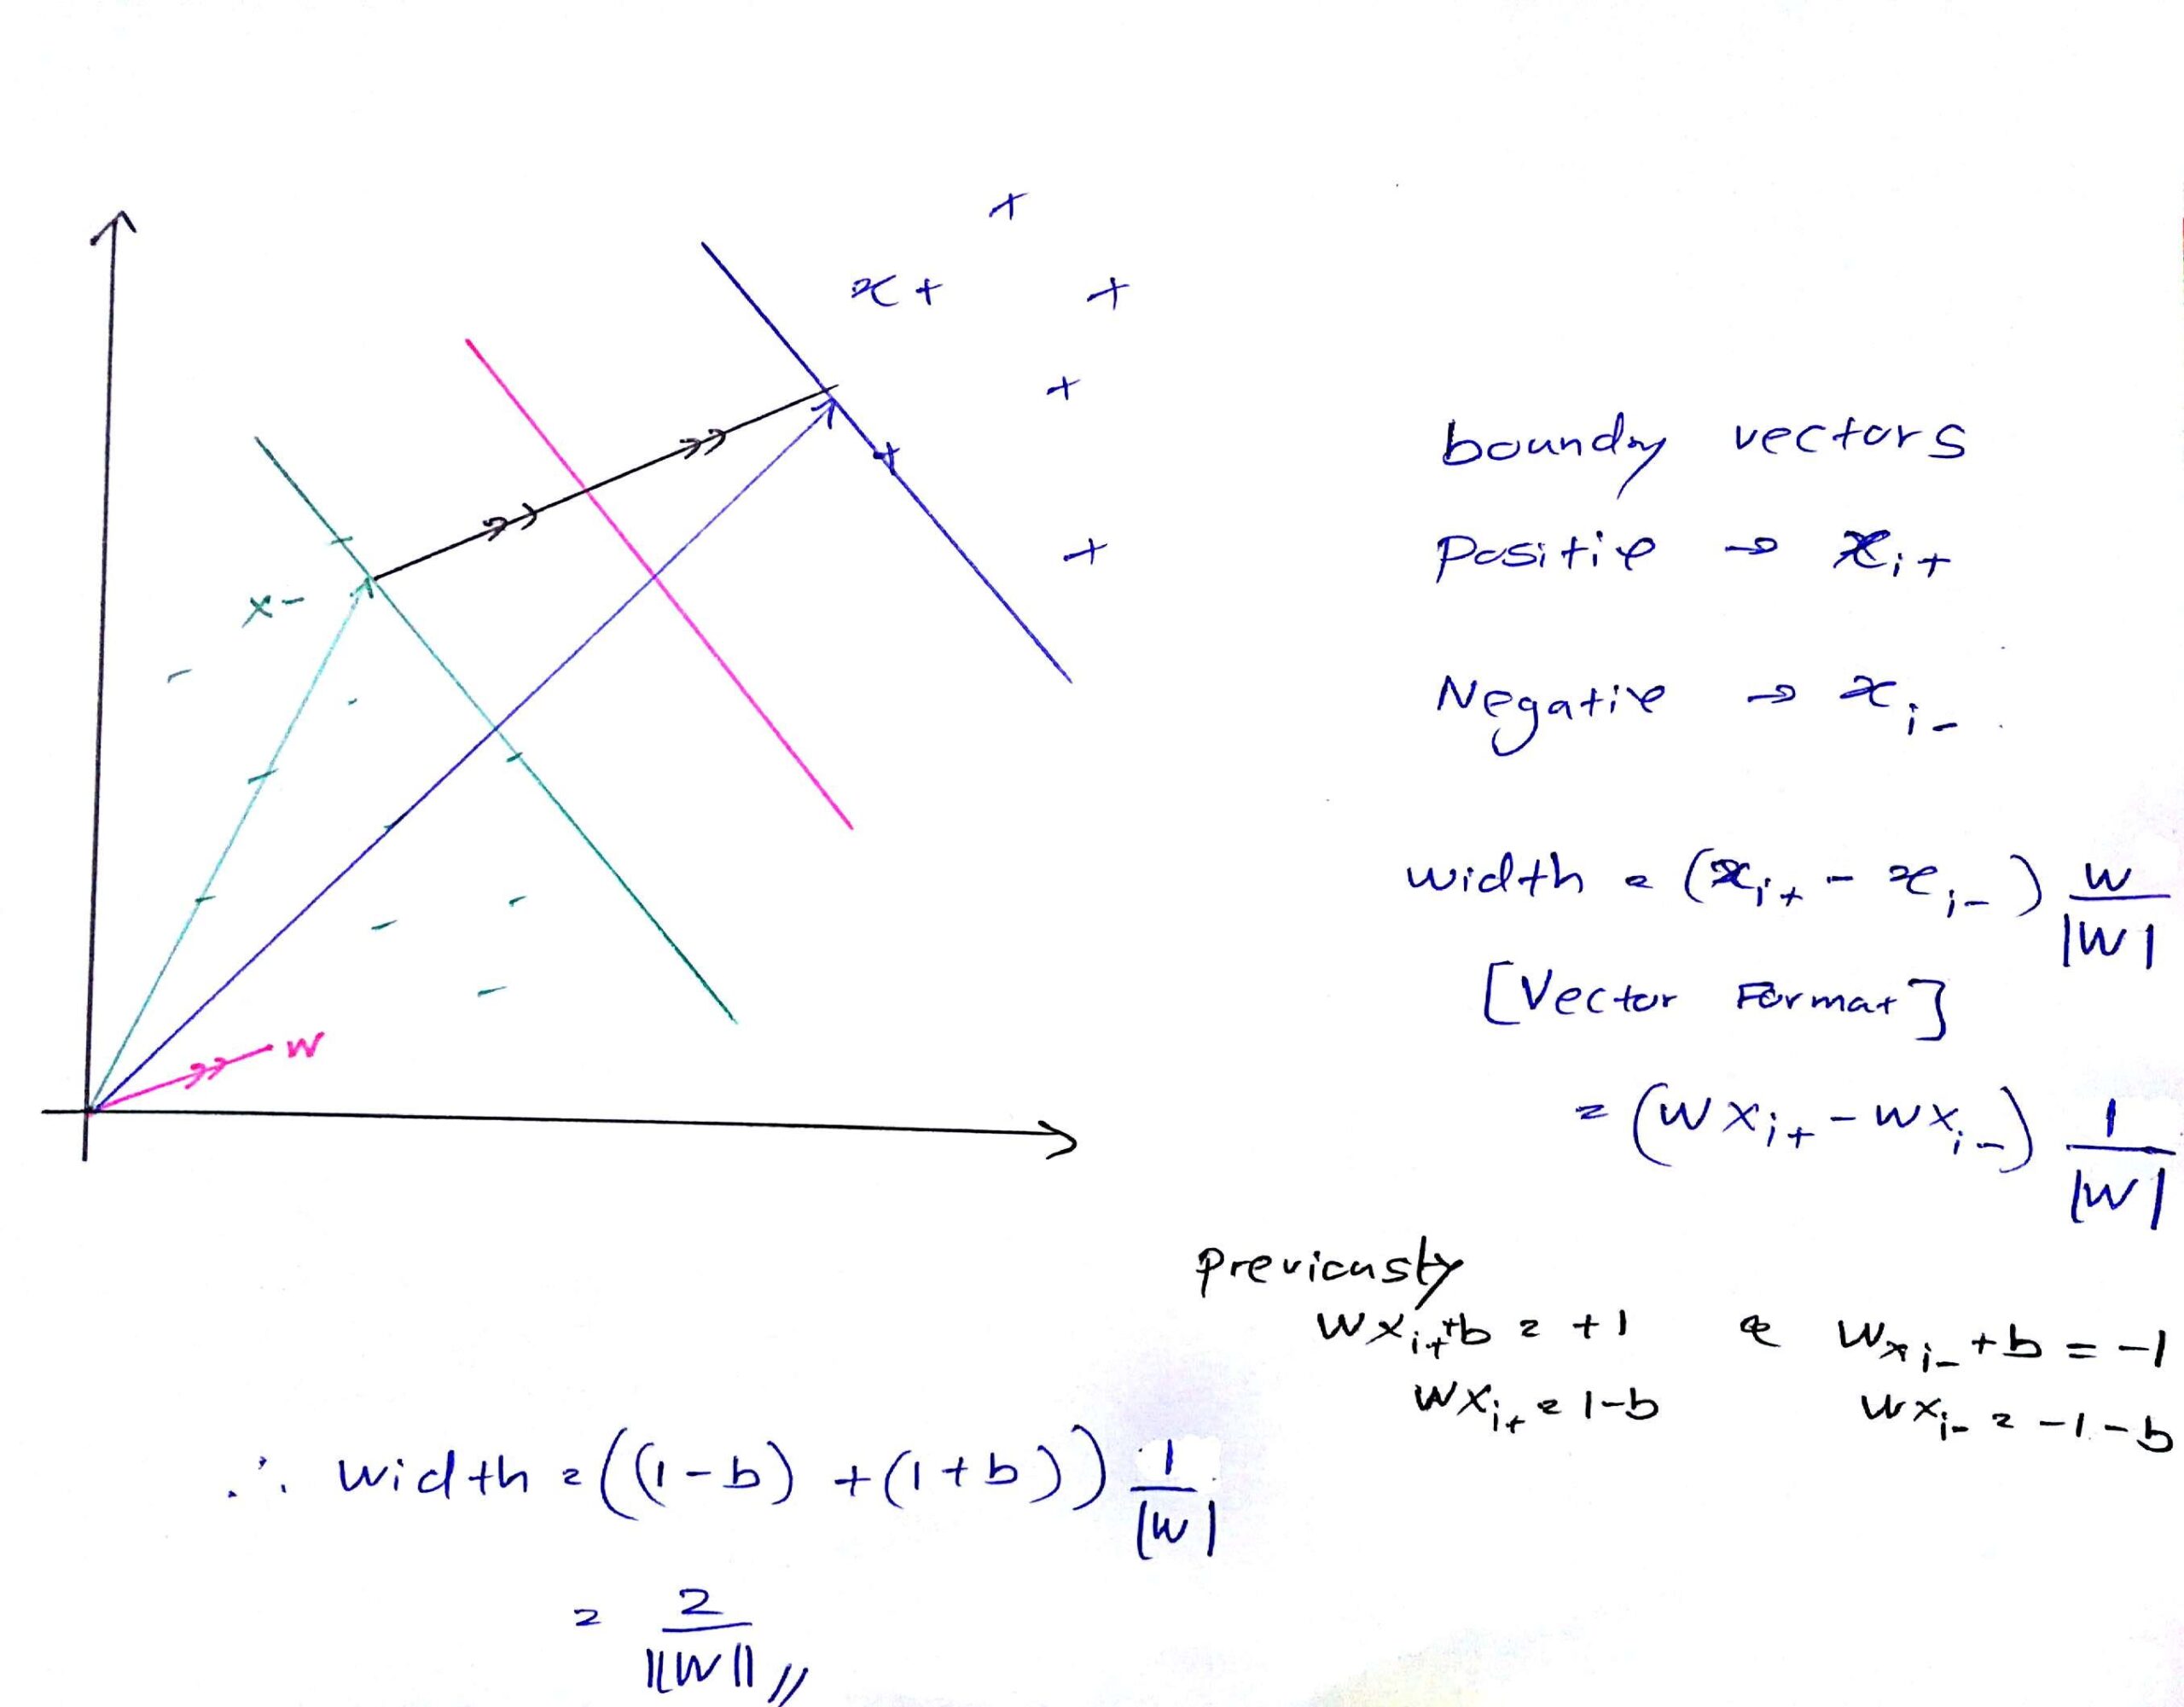 x +
x -
w
boundry vectors
Positive → x_{i+}
Negative → x_{i-}
width = (x_{i+} - x_{i-}) w/|w|
[Vector Format]
= (wx_{i+} - wx_{i-}) 1/|w|
previously
wx_{i+}+b = +1 & wx_{i-}+b = -1
wx_{i+} = 1-b wx_{i-} = -1-b
∴ width = ((1-b) + (1+b)) 1/|w|
= 2/||w|| //